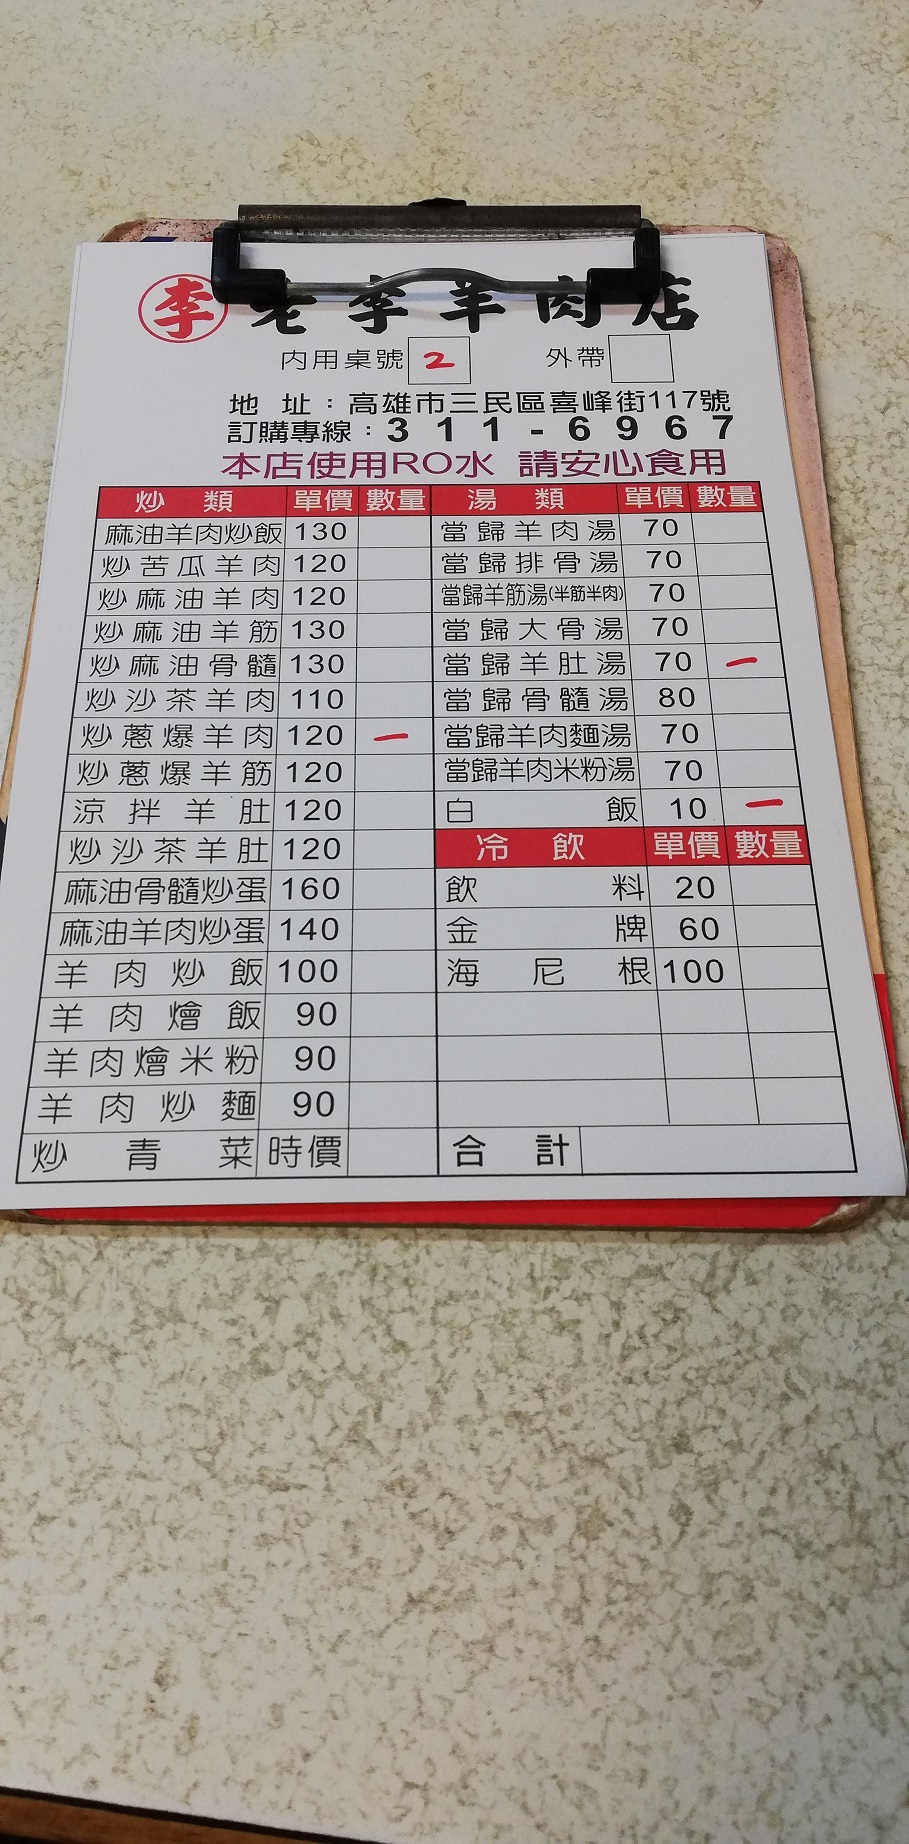 李 老李羊肉店
內用桌號 2 外帶
地 址：高雄市三民區喜峰街117號
訂購專線：311-6967
本店使用RO水 請安心食用
炒類 單價 數量 湯類 單價 數量
麻油羊肉炒飯 130 當歸羊肉湯 70
炒苦瓜羊肉 120 當歸排骨湯 70
炒麻油羊肉 120 當歸羊筋湯(半筋半肉) 70
炒麻油羊筋 130 當歸大骨湯 70
炒麻油骨髓 130 當歸羊肚湯 70 一
炒沙茶羊肉 110 當歸骨髓湯 80
炒蔥爆羊肉 120 一 當歸羊肉麵湯 70
炒蔥爆羊筋 120 當歸羊肉米粉湯 70
涼拌羊肚 120 白飯 10 一
炒沙茶羊肚 120 冷飲 單價 數量
麻油骨髓炒蛋 160 飲料 20
麻油羊肉炒蛋 140 金牌 60
羊肉炒飯 100 海尼根 100
羊肉燴飯 90
羊肉燴米粉 90
羊肉炒麵 90
炒青菜 時價 合計